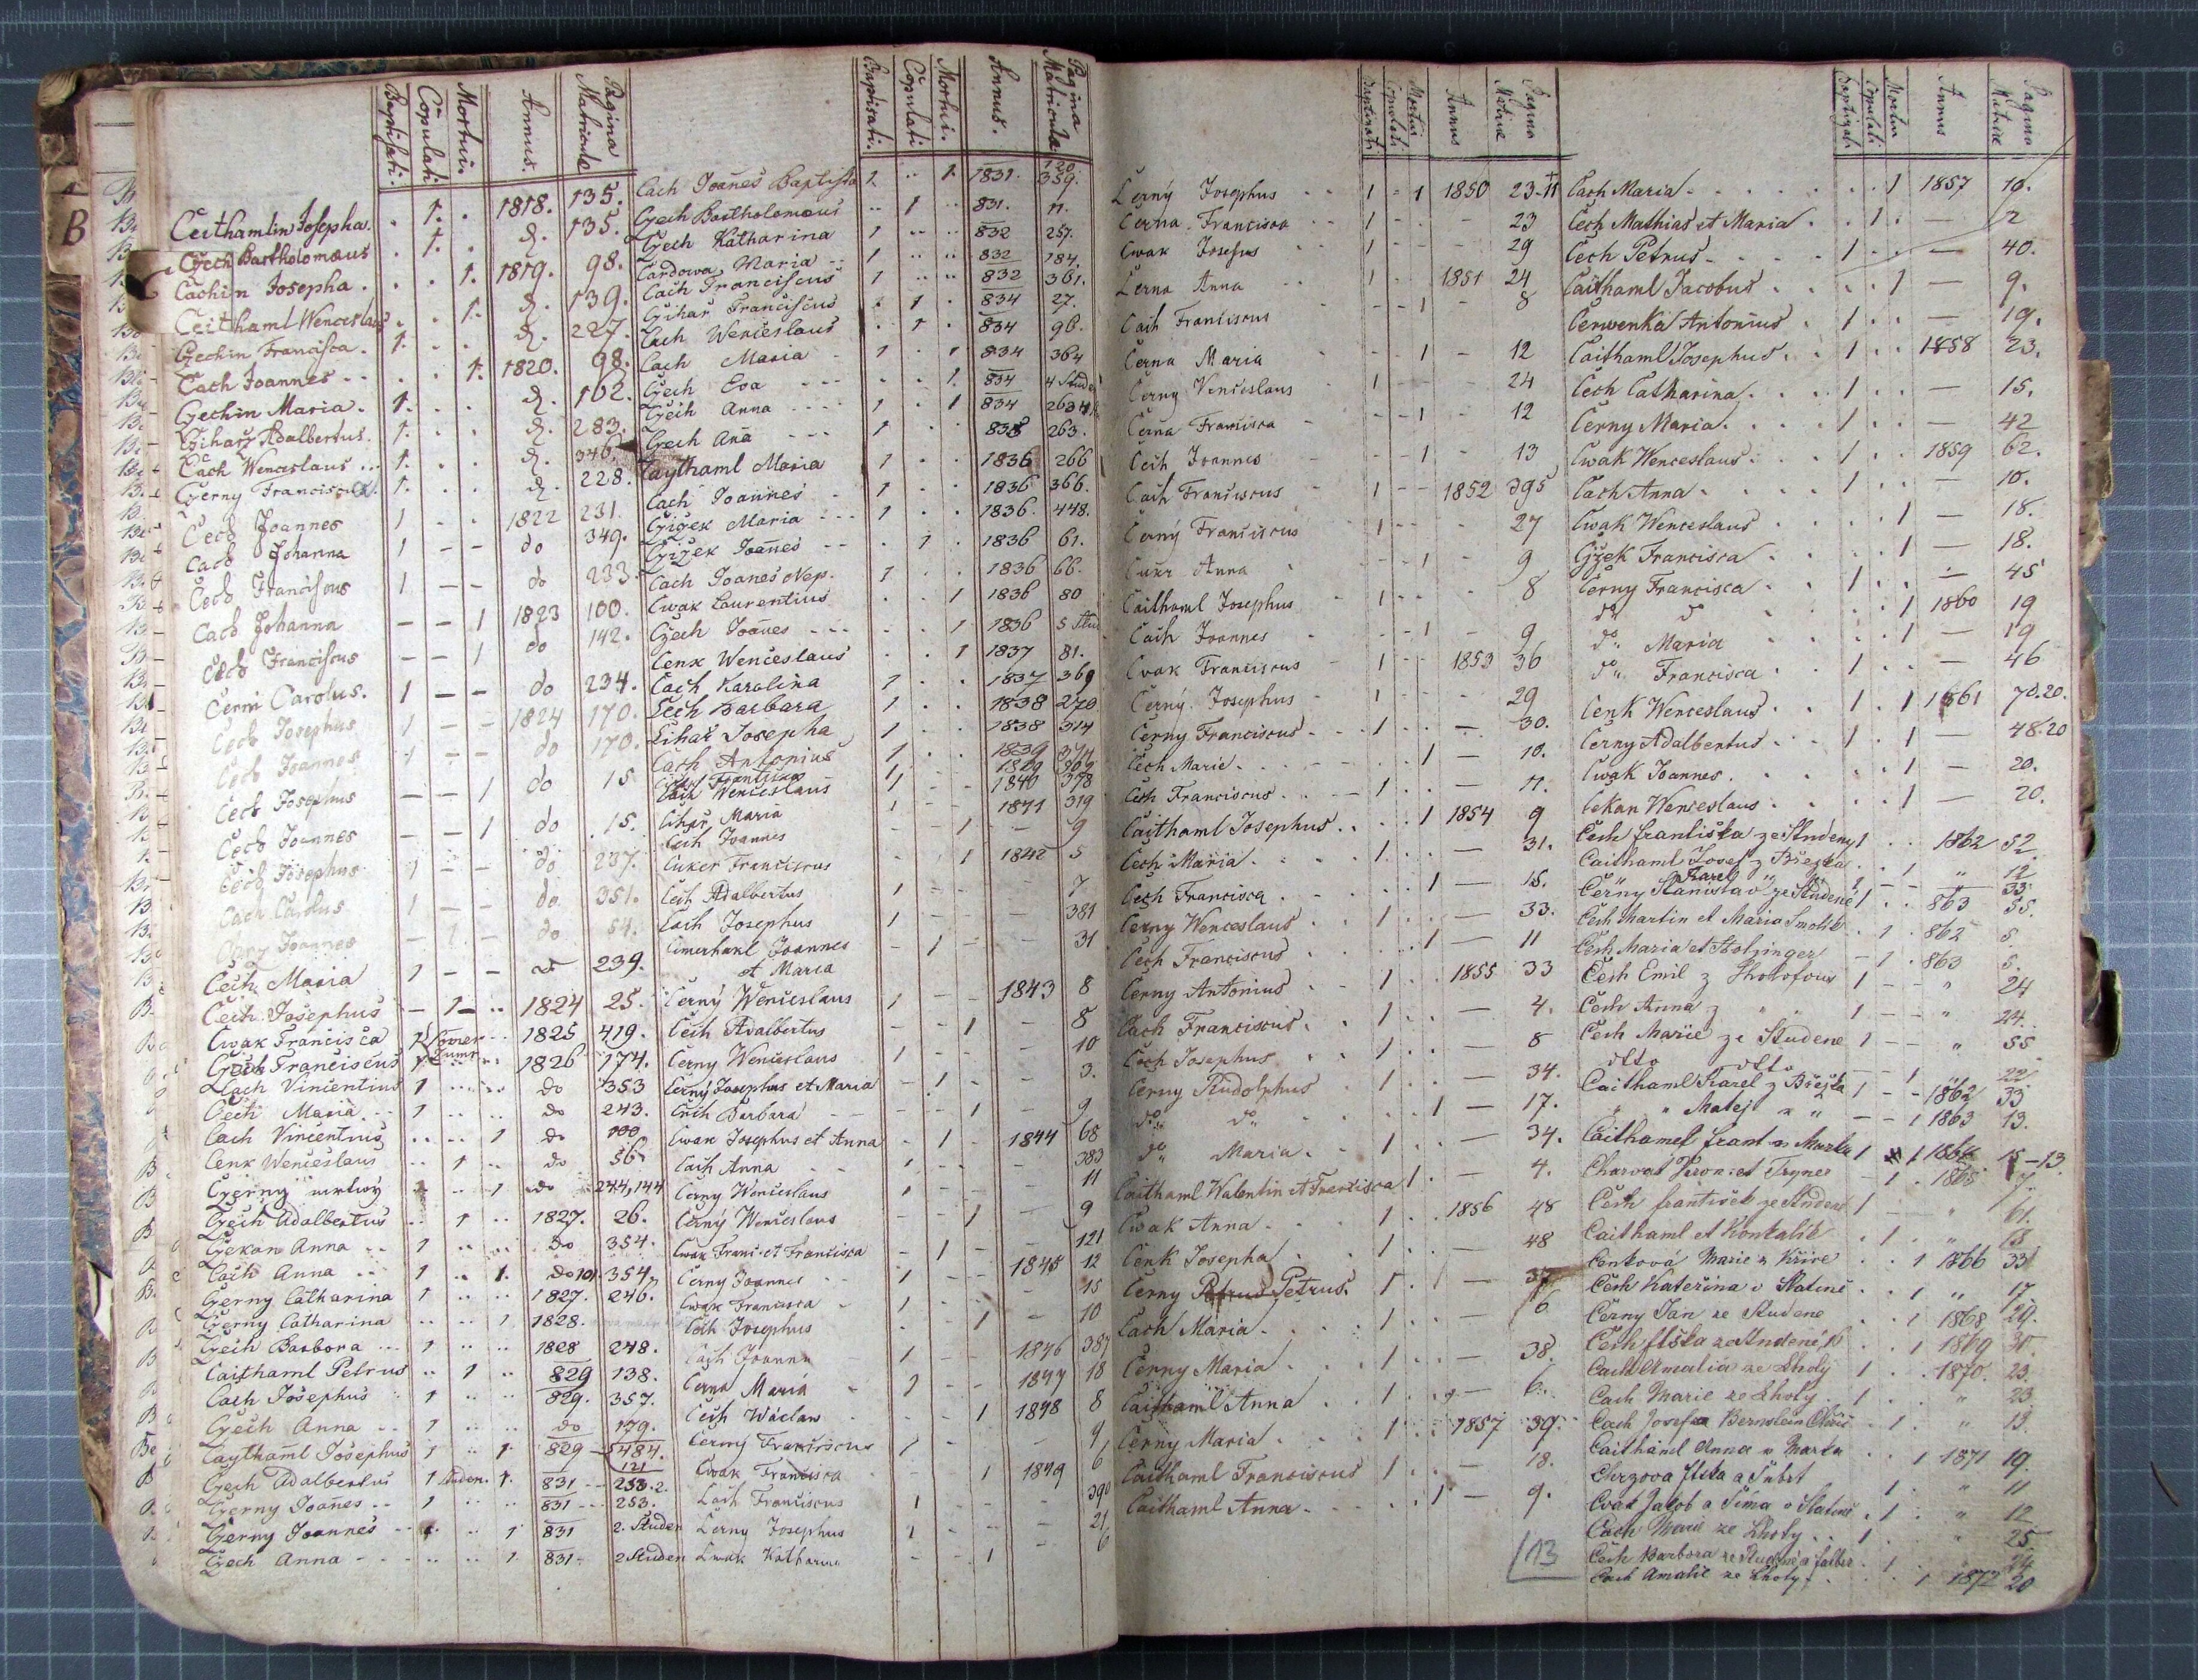 B
Baptisati. Copulati Mortui. Annus. Pagina Matriculae
Ceithamlin Josepha. . 1. . 1818. 135.
Czech Bartholomæus . 1. . d. 135.
Cachin Josepha . . . 1. 1819. 98.
Ceithaml Wenceslaus . . 1. d. 139.
Czechin Francisca . 1. . . d. 227.
Cach Joannes . . 1. 1820. 98.
Czechin Maria . 1. . . d. 162.
Cziharz Adalbertus. 1. . . d. 283.
Cach Wenceslaus 1. . . d. 346.
Czerny 1. . . d. 228.
Cech Joannes 1 . . 1822 231.
Cach Johanna 1 - - do 349.
Cech Franciscus 1 - - do 233.
Cach Johanna - - 1 1823 100.
Cech Franciscus - - 1 do 142.
Cerni Carolus. 1 - - do 234.
Cech Josephus 1 - - 1824 170.
Cech Joannes 1 - - do 170.
Cech Josephus - - 1 do 15
Cech Joannes - - 1 do 15.
Cech Josephus 1 - - do 237.
Cach Carolus 1 - - do 351.
Joannes - 1 - do 54.
Cech Maria 1 - - do 239.
Cech Josephus - 1 - 1824 25.
Cwak Francisca 1 1825 419.
Czech Franciscus 1 1826 174.
Cach Vincentius 1 do 353
Cech Maria 1 do 243.
Cach Vincentius 1 do 100
Cenk Wenceslaus 1 do 56
Czerny mrtwý 1 do 244,144
Czech Adalbertus 1 1827. 26.
Czekan Anna 1 do 354.
Cach Anna 1 1. do 101 354
Czerny Catharina 1 1827. 246.
Czerny Catharina 1 1828.
Czech Barbora 1 1828 248.
Caithaml Petrus 1 829 138.
Cach Josephus 1 829. 357.
Czech Anna 1 do 179.
Caythaml Josephus 1 1 829 484.
Czech Adalbertus 1 Studen. 1. 831 121 253.2.
Czerny Joanes 1 831 253.
Czerny Joannes 1 831 2. Studen
Czech Anna 1. 831 2 Studen
Baptisati. Copulati Mortui. Annus. Pagina Matriculae
Cach Joanes Baptista 1 1. 1831. 120 359.
Czech Bartholomæus 1 831. 11.
Czech Katharina 1 832 257.
Cardowa Maria 1 832 184.
Cach Franciscus 1 832 361.
Czihar Franciscus 1 834 27.
Cach Wenceslaus 1 834 96.
Cach Maria 1 1 834 364
Czech Eva 1. 834 4 Studen
Czech Anna 1 1 834 263
Czech Aña 1 835 263.
Caythaml Maria 1 1836 266
Cach Joannes 1 1836 366.
Czizek Maria 1 1836. 448.
Czizek Joañes 1 1836 61.
Cach Joanes Nep. 1 1836 66.
Cwak Laurentius 1 1836 80
Czech Joanes 1 1836 5 Stud
Cenk Wenceslaus 1 1837 81.
Cach Karolina 1 1837 369
Cech Barbara 1 1838 270
Cihař Josepha 1 1838 314
Cach Antonius 1 1839 374
Cach Wenceslaus 1 1840 378
Cihař Maria 1 1841 319
Cech Joannes 1 - 9
Cuker Franciscus 1 1842 5
Cech Adalbertus 1 7
Cach Josephus 1 381
Cimerhakl Joannes et Maria 1 31
Černý Wenceslaus 1 1843 8
Cech Adalbertus 1 8
Cerny Wenceslaus 1 10
Černý Josephus et Maria 1 3.
Cech Barbara 1 9
Cwak Josephus et Anna 1 1844 68
Cach Anna 1 383
Cerny Wenceslaus 1 11
Černý Wenceslaus 1 9
Cwak Franc. et Francisca 1 121
Cerny Joannes 1 1845 12
Cwak Francisca 1 15
Cech Josephus 1 10
Cach Joanna 1 1846 387
Cerna Maria 1 1847 18
Cech Wáclaw 1 1848 8
Černý Franciscus 1 9
Cwak Francisca 1 1849 6
Cach Franciscus 1 390
Cerny Josephus 1 21
Cwak Katharina 1 6
Baptizati Copulati Mortui Annus Pagina Matricæ
Černý Josephus 1 - 1 1850 23-11
Cerna Francisca 1 23
Cwak Josefus 1 29
Cerna Anna 1 1851 24
Cach Franciscus 1 8
Cerna Maria 1 12
Cerny Venceslaus 1 24
Cerna Francisca 1 12
Cech Joannes 1 13
Cach Franciscus 1 1852 395
Černý Franciscus 1 27
Cukr Anna 1 9
Caithaml Josephus 1 8
Cach Joannes 1 9
Cwak Franciscus 1 1853 36
Černý Josephus 1 29
Černy Franciscus 1 30.
Cech Marie 1 10.
Cech Franciscus 1 11.
Caithaml Josephus 1 1854 9
Cech Maria 1 31.
Cech Francisca 1 15.
Cerny Wenceslaus 1 33.
Cech Franciscus 1 11
Cerny Antonius 1 1855 33
Cach Franciscus 1 4.
Cech Josephus 1 8
Cerny Rudolphus 1 34.
do do 1 17.
do Maria 1 34.
Caithaml Walentin et Francisca 1 4.
Cwak Anna 1 1856 48
Cenk Josepha 1 48
Cerny Petrus. 1 37
Cach Maria 1 6
Cerny Maria 1 38.
Caithaml Anna 1 6.
Cerny Maria 1 1857 39.
Caithaml Franciscus 1 18.
Caithaml Anna 1 9.
13
Baptizati Copulati Mortui Annus Pagina Matricæ
Cach Maria 1 1857 10.
Cech Mathias et Maria 1 — 2
Cech Petrus 1 — 40.
Caithaml Jacobus 1 — 9.
Cerwenka Antonius 1 — 19.
Caithaml Josephus 1 1858 23.
Cech Catharina 1 — 15.
Cerny Maria 1 — 42
Cwak Wenceslaus 1 1859 62.
Cach Anna 1 — 10.
Cwak Wenceslaus 1 — 18.
Cjžek Francisca 1 — 18.
Cerny Francisca 1 — 45
do do 1 1860 19
do Maria 1 — 19
do Francisca 1 — 46
Cenk Wenceslaus 1 1 1861 70.20.
Cerny Adalbertus 1 1 — 48.20
Cwak Joannes 1 — 20.
Cekan Wenceslaus 1 — 20.
Čech Františka ze Studeny 1 1862 52
Caithaml Josef z Březka 1 " 12
Karel " 33
Černy Stanislav ze Studené 1 863 55.
Cech Martin et Maria Smolik 1 862 5
Čech Maria et Holzinger 1 863 5.
Čech Emil z 1 " 24
Čech Anna z " 1 " 24.
Čech Marie ze Studene 1 " 55
otto otto 1 " 22
Caithaml Karel z Březka 1 1862 33
" Matej " " 1 1863 13.
Caithaml frant z Marka 1 1 1864 15-13.
Charvat et 1 1865
Čech frantisek ze Studene 1 " 61.
Caithaml et Konkalik 1 "
Cenková Marie z Křive 1 1866 33
Čech Kateřina v Slatině 1 " 17
Cerny Jan ze Studene 1 1868 29.
Čech ze Studené 1 1869 30.
Cach Amalia ze Lhoty 1 1870. 23.
Cach Marie ze Lhoty 1 " 23
Cach Josef a Bernstein 1 " 13.
Caithaml Anna z Marka 1 1871 19.
a 1 " 11
Cvak Jakob a Šíma v Slatině 1 " 12
Cach Marie ze Lhoty 1 " 25
Čech Barbora ze Studené 1 24.
Cach Amalie ze Lhoty 1 1872 20